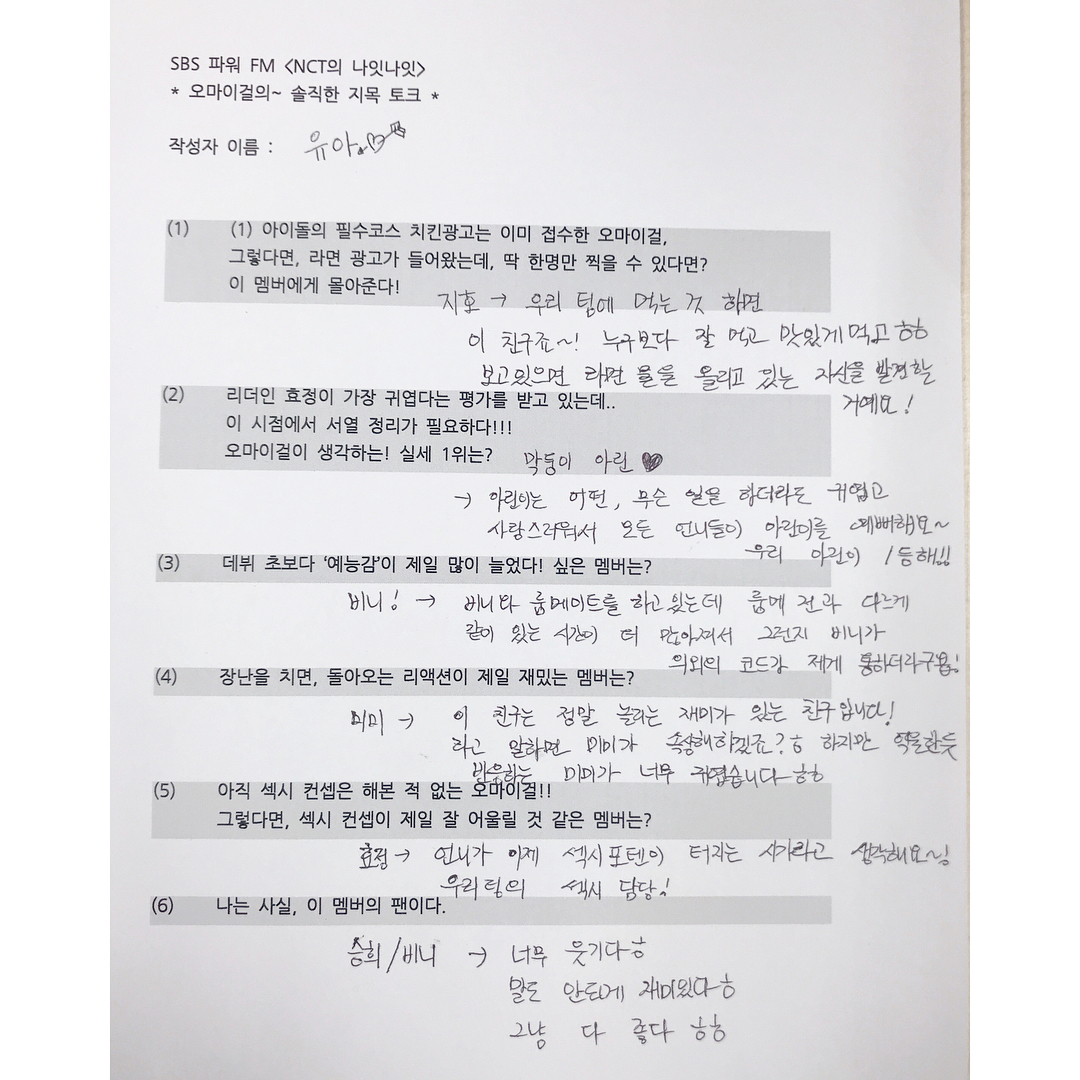 SBS 파워 FM <NCT의 나잇나잇>
* 오마이걸의~ 솔직한 지목 토크 *
작성자 이름 : 유아
(1) (1) 아이돌의 필수코스 치킨광고는 이미 접수한 오마이걸,
그렇다면, 라면 광고가 들어왔는데, 딱 한명만 찍을 수 있다면?
이 멤버에게 몰아준다!
지호 → 우리 팀에 먹는 것 하면
이 친구죠~! 누구보다 잘 먹고 맛있게 먹고 ㅎㅎ
보고있으면 라면 물을 올리고 있는 자신을 발견할
거예요!
(2) 리더인 효정이 가장 귀엽다는 평가를 받고 있는데..
이 시점에서 서열 정리가 필요하다!!!
오마이걸이 생각하는! 실세 1위는? 막둥이 아린 ♥
→ 아린이는 어떤, 무슨 일을 하더라도 귀엽고
사랑스러워서 모든 언니들이 아린이를 예뻐해요~
우리 아린이 1등해!!
(3) 데뷔 초보다 '예능감'이 제일 많이 늘었다! 싶은 멤버는?
비니! → 비니와 룸메이트를 하고있는데 룸메 전과 다르게
같이 있는 시간이 더 많아져서 그런지 비니가
의외의 코드가 제게 통하더라구용!
(4) 장난을 치면, 돌아오는 리액션이 제일 재밌는 멤버는?
미미 → 이 친구는 정말 놀리는 재미가 있는 친구입니다!
라고 말하면 미미가 속상해하겠죠?ㅎ 하지만 억울한듯
반응하는 미미가 너무 귀엽습니다ㅎㅎ
(5) 아직 섹시 컨셉은 해본 적 없는 오마이걸!!
그렇다면, 섹시 컨셉이 제일 잘 어울릴 것 같은 멤버는?
효정 → 언니가 이제 섹시포텐이 터지는 시기라고 생각해요~!
우리팀의 섹시 담당!
(6) 나는 사실, 이 멤버의 팬이다.
승희/비니 → 너무 웃기다ㅎ
말도 안되게 재미있다ㅎ
그냥 다 좋다 ㅎㅎ